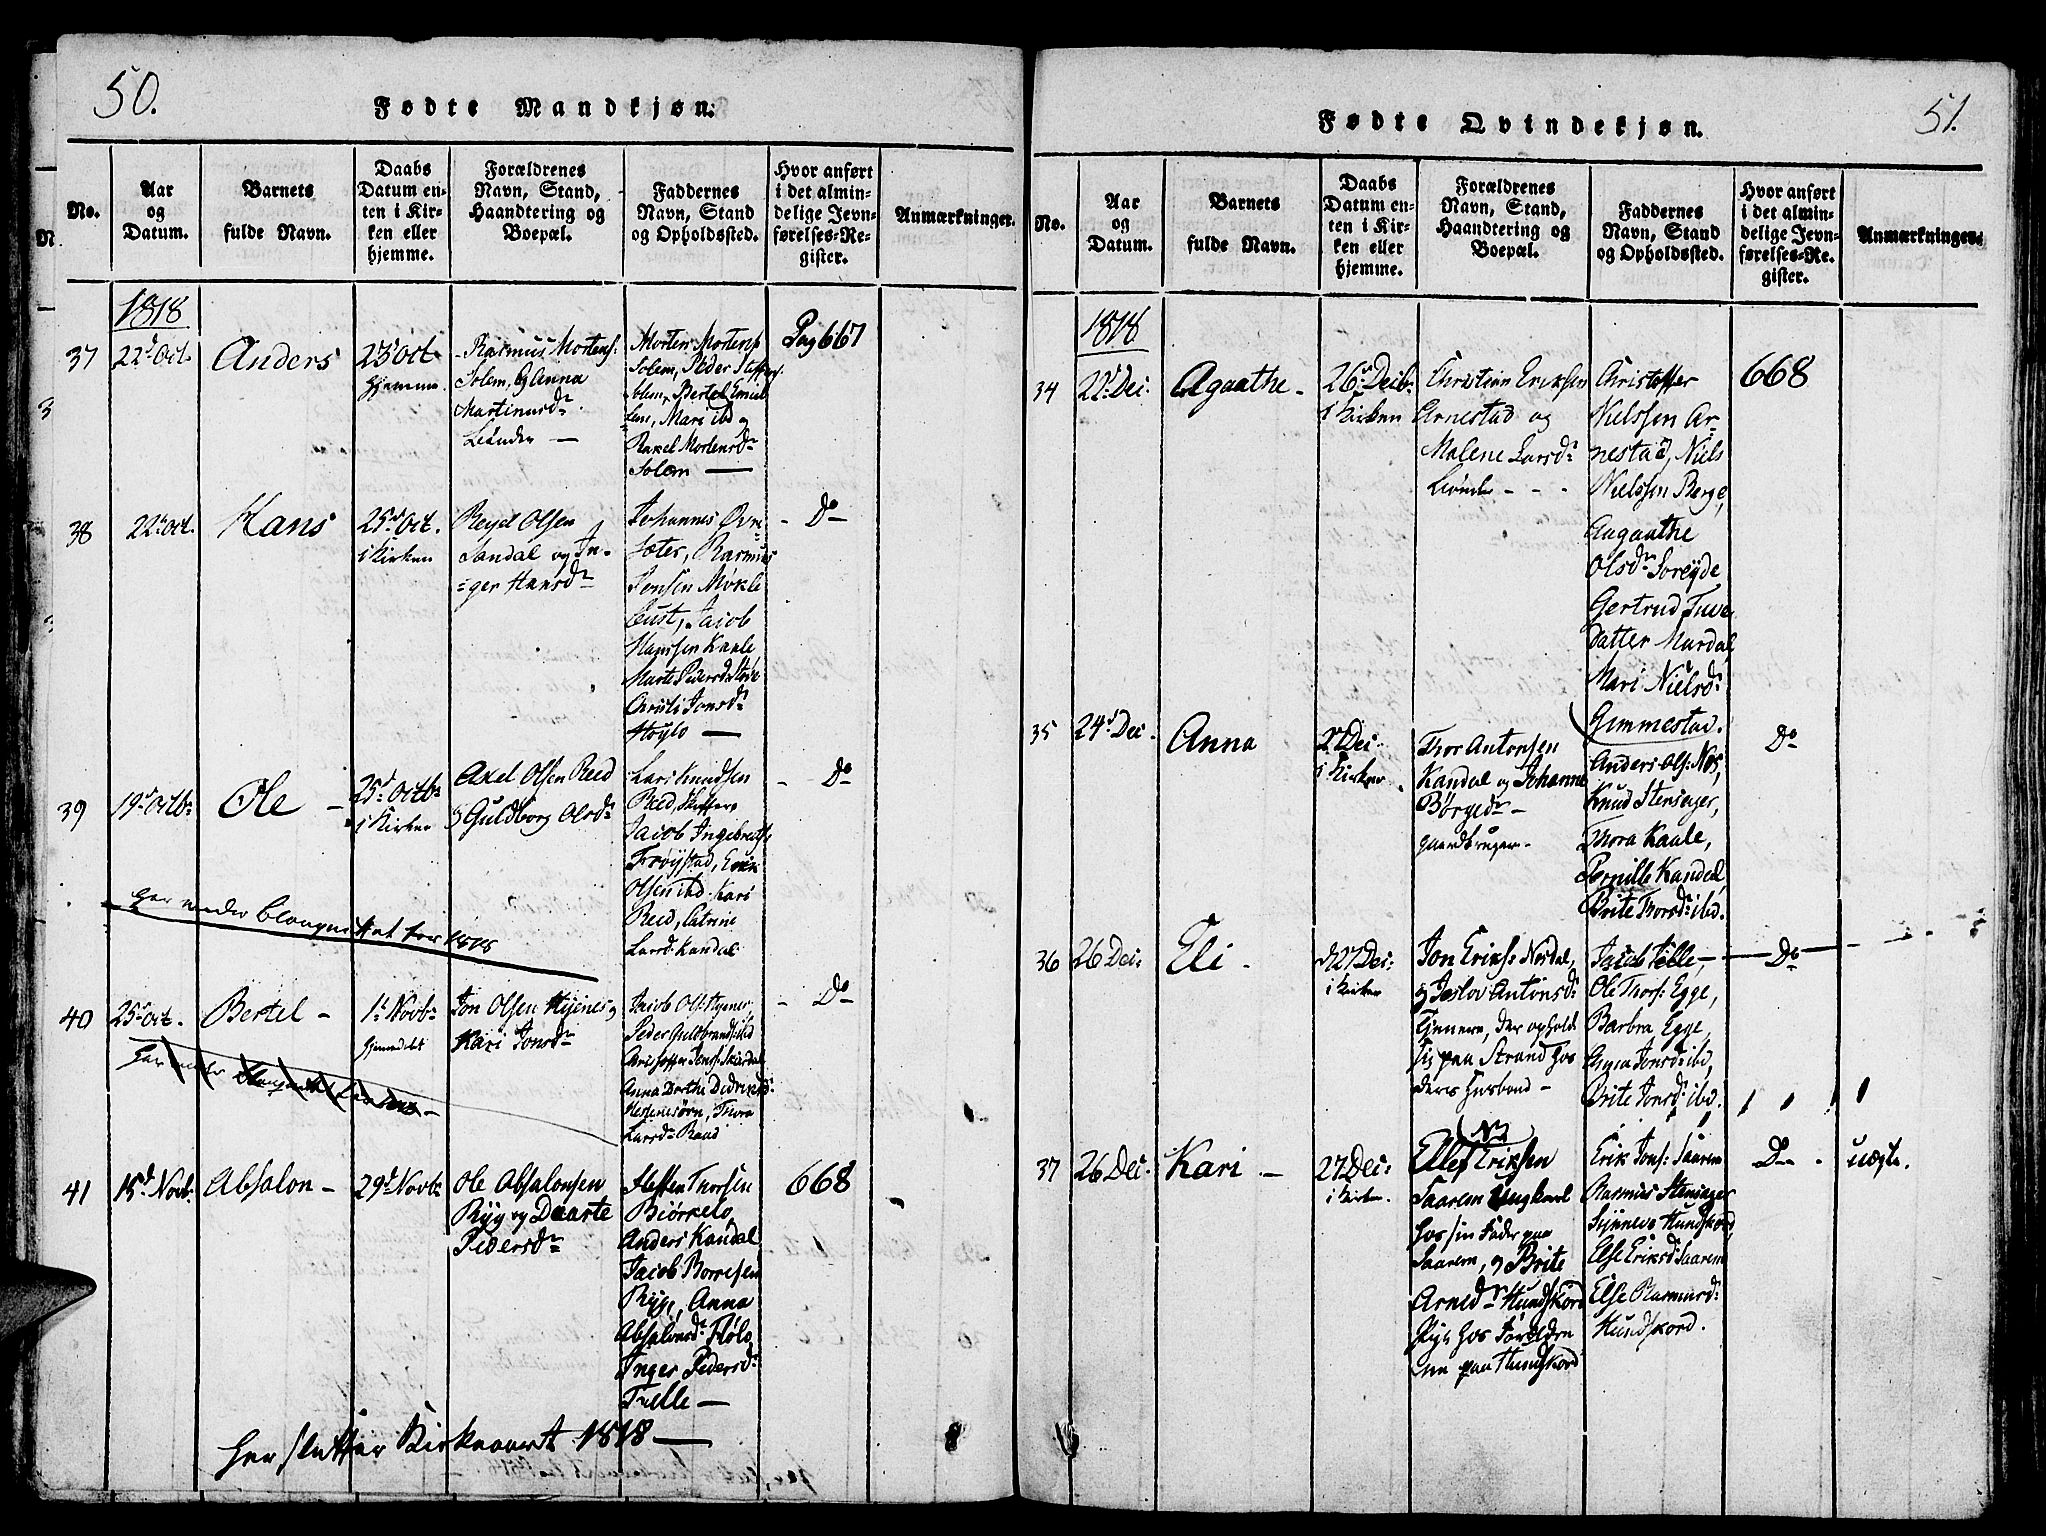 50.
Fødte Mandkjøn.
No.
Aar
og
Datum.
Barnets
fulde Navn.
Daabs
Datum en-
ten i Kir-
ken eller
hjemme.
Forældrenes
Navn, Stand,
Haandtering og
Boepæl.
Faddernes
Navn, Stand
og Opholdssted.
Hvor anført
i det almin-
delige Jevn-
førelses-Re-
gister.
Anmærkninger.
1818
37
22de Oct.
Anders
23de Oct
hjemme.
Rasmus Mortens:
Solem, og Anna
Martinusdr.
Leilænder —
Morten Mortens
Solem, Peder Steffens
Solem, Bertel
Mari ibd og
Raxel Mortensdr
Solem —
Pag 667
38
22de Oct.
Hans
25de Oct.
i Kirken
Reyel Olsen
Sandal og In-
ger Hansdr
Johannes Øvre
Sæter, Rasmus
Jensen Møkle
bust, Jacob
Hanssen Kaale
Marte Pedersd.
Christi Jonsdr
Høylo —
- Do -
39
19de Octbr
Ole —
25de Octbr
i Kirken
Axel Olsen Reed
og Guldborg Olsdr
Lars Knudsen
Reed, Steffen
Jacob Ingebretss
Trøystad,
Olsen ibd. Kari
Reed, Catrine
Larsdr Kandal
- Do
her under for 1818
40
25de Oct.
Bertel —
1ste Novbr
hjemdøbt
Jon Olsen Hjenes og
Kari Jonsdr
Jacob Ols: Hjenes,
Peder Guldbrands ibd
Christoffer Jens: Skærdal
Anna Dorthe Didriksdr
Hestenesørn, Thora
Larsdr Raad
- Do
41
15de Novb.
Absalon —
29de Novbr
Ole Absalonsen
Ryg og Daarte
Pedersdr
Steffen Thorsen
Biørkelo
Anders Kandal
Jacob Borresen
Ryg, Anna
Absalonsdr Flølo
Inger Pedersdr
Telle —
668
her slutter Kirkeaaret 1818 —
51.
Fødte Qvindekjøn.
No.
Aar
og
Datum.
Barnets
fulde Navn.
Daabs
Datum en-
ten i Kir-
ken eller
hjemme.
Forældrenes
Navn, Stand,
Haandtering og
Boepæl.
Faddernes
Navn, Stand
og Opholdssted.
Hvor anført
i det almin-
delige Jevn-
førelses-Re-
gister.
Anmærkninger.
1818
34
22de Dec.
Agaathe —
26de Decb.
i Kirken
Christian Eriksen
Arnestad og
Malene Larsdr
Leilænder - - -
Christoffer
Nielssen Ar-
nestad, Niels
Nielssen Berge,
Aagaathe
Olsdr Soreyde
Gertrud Tuve
datter Mardal
Mari Nielsdr
Gimmestad.
668
35
24de Dec.
Anna
27 Dec.
i Kirken
Thor Antonsen
Kandal og Johanne
Børgedr —
gaardbruger.
Anders Ols: Nøs,
Knud Stensager,
Thora Kaale,
Pernille Kandal,
Brite Thorsdr ibd.
Do
36
26 Dec:
Eli -
d 27 Dec:
i Kirken
Jon Eriks: Nordal,
og Jeslov Antonsdr
Tjenere, der ophold
sig paa Strand hos
deres husbond —
Jacob Telle,
Ole Thors: Egge,
Barbra Egge,
Anna Jonsdr ibd,
Brite Jonsdr ibd.
Do
37
26 Dec.
Kari —
27 Dec:
i Kirken.
Ellef Eriksen
Saarem Ungkarl
hos sin Fader paa
Saarem, og Brite
Arnedr Hundskord
Pige hos Foreldre
ne paa Hundskord
Erik Jons: Saarem
Rasmus Stensager
Synneve Hundskord
Else Eriksd: Saarem
Else Rasmusdr
Hundskord.
Do
uægte.